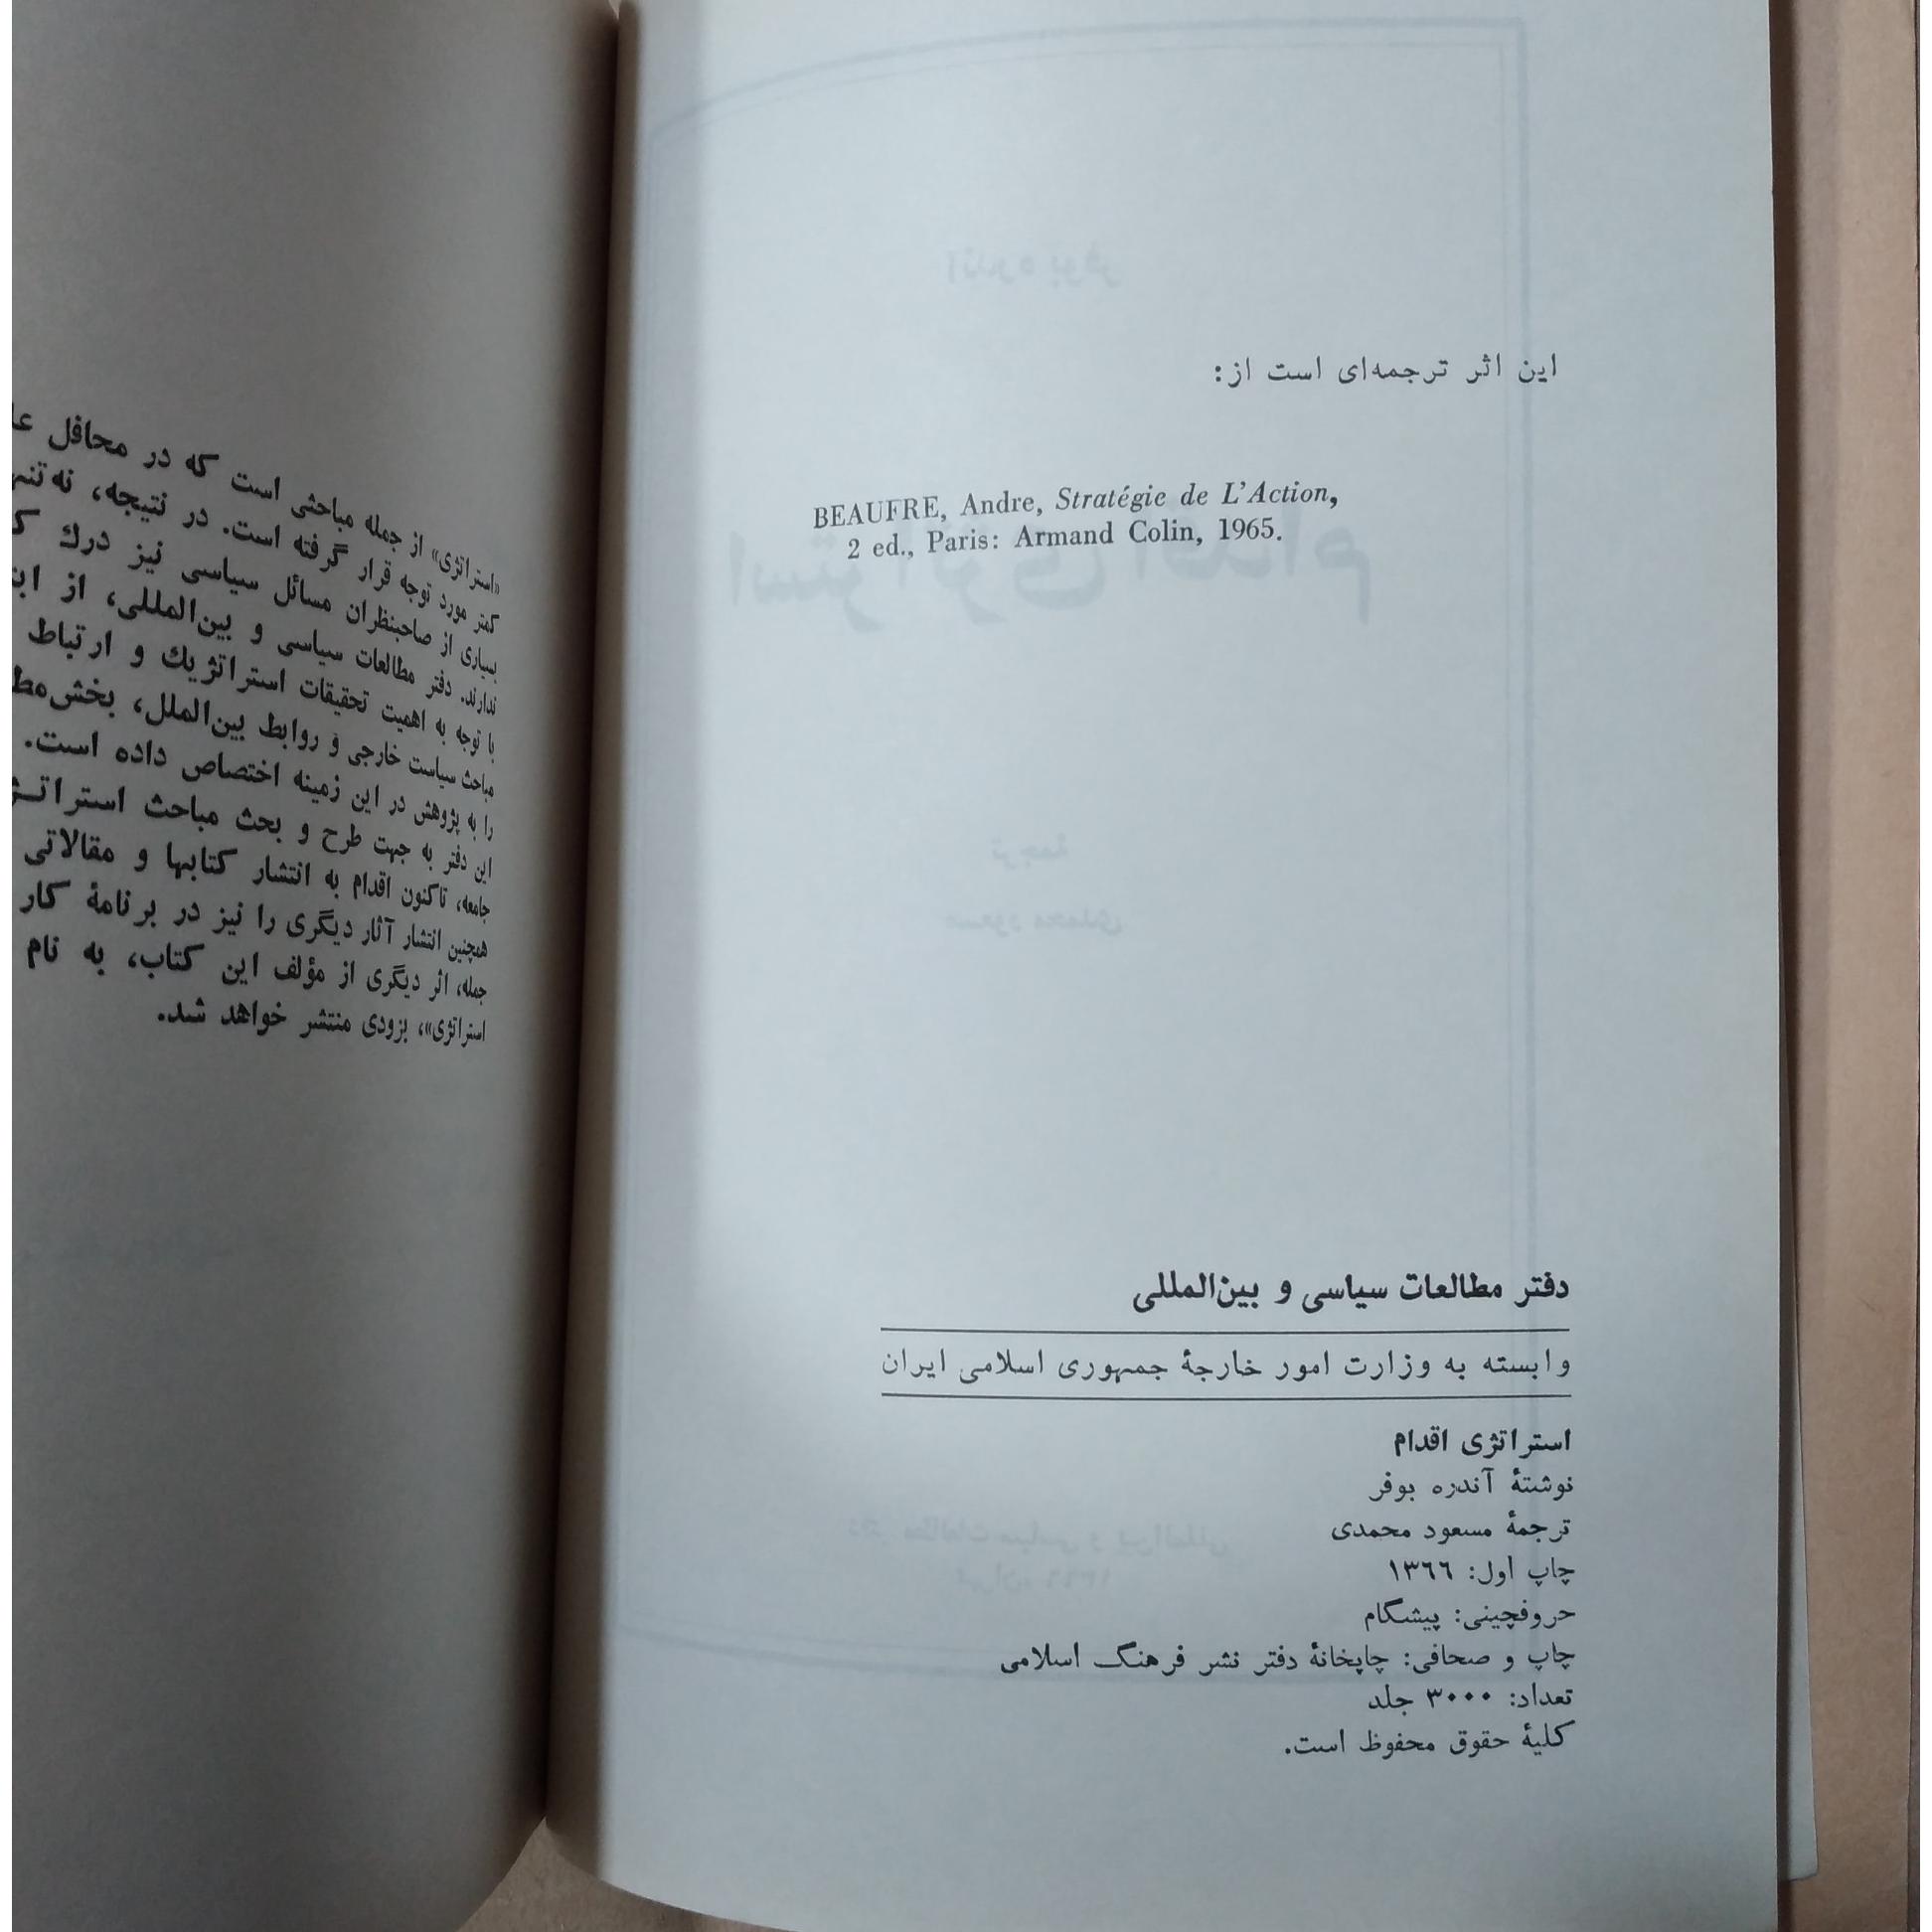 این اثر ترجمه‌ای است از:
BEAUFRE, Andre, Stratégie de L'Action,
2 ed., Paris: Armand Colin, 1965.
دفتر مطالعات سیاسی و بین‌المللی
وابسته به وزارت امور خارجهٔ جمهوری اسلامی ایران
استراتژی اقدام
نوشتهٔ آندره بوفر
ترجمهٔ مسعود محمدی
چاپ اول: ۱۳۶۶
حروفچینی: پیشگام
چاپ و صحافی: چاپخانهٔ دفتر نشر فرهنگ اسلامی
تعداد: ۳۰۰۰ جلد
کلیهٔ حقوق محفوظ است.
«استراتژی» از جمله مباحثی است که در محافل
کمتر مورد توجه قرار گرفته است. در نتیجه،
بسیاری از صاحبنظران مسائل سیاسی نیز درك
ندارند. دفتر مطالعات سیاسی و بین‌المللی، از
با توجه به اهمیت تحقیقات استراتژیك و ارتباط
مباحث سیاست خارجی و روابط بین‌الملل،
را به پژوهش در این زمینه اختصاص داده است.
این دفتر به جهت طرح و بحث مباحث
جامعه، تاکنون اقدام به انتشار کتابها و مقالاتی
همچنین انتشار آثار دیگری را نیز در برنامهٔ کار
جمله، اثر دیگری از مؤلف این کتاب، به نام
استراتژی»، بزودی منتشر خواهد شد.